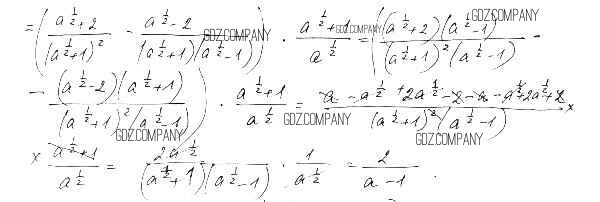 = ( (a^{1/2}+2)/(a^{1/2}+1)^2 - (a^{1/2}-2)/((a^{1/2}+1)(a^{1/2}-1)) ) · (a^{1/2}+1)/a^{1/2} = ( ((a^{1/2}+2)(a^{1/2}-1))/((a^{1/2}+1)^2(a^{1/2}-1)) -
- ((a^{1/2}-2)(a^{1/2}+1))/((a^{1/2}+1)^2(a^{1/2}-1)) ) · (a^{1/2}+1)/a^{1/2} = (a-a^{1/2}+2a^{1/2}-2-a-a^{1/2}+2a^{1/2}+2)/((a^{1/2}+1)^2(a^{1/2}-1)) ×
× (a^{1/2}+1)/a^{1/2} = 2a^{1/2}/((a^{1/2}+1)(a^{1/2}-1)) · 1/a^{1/2} = 2/(a-1).
GDZ.COMPANY
GDZ.COMPANY
GDZ.COMPANY
GDZ.COMPANY
GDZ.COMPANY
GDZ.COMPANY